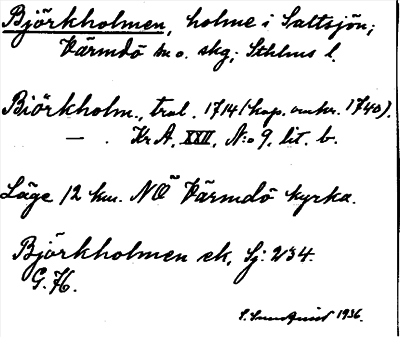 Björkholmen, holme i Saltsjön;
Värmdö sn o. skg; Sthlms l.
Biörkholm., trol. 1714 (kop. omkr. 1740).
— . Kr A, XXII, N:o 9, lit. b.
Läge 12 km. NÖ Värmdö kyrka.
Björkholmen ek, Sj: 234.
G.H.
S. Sundquist 1936.